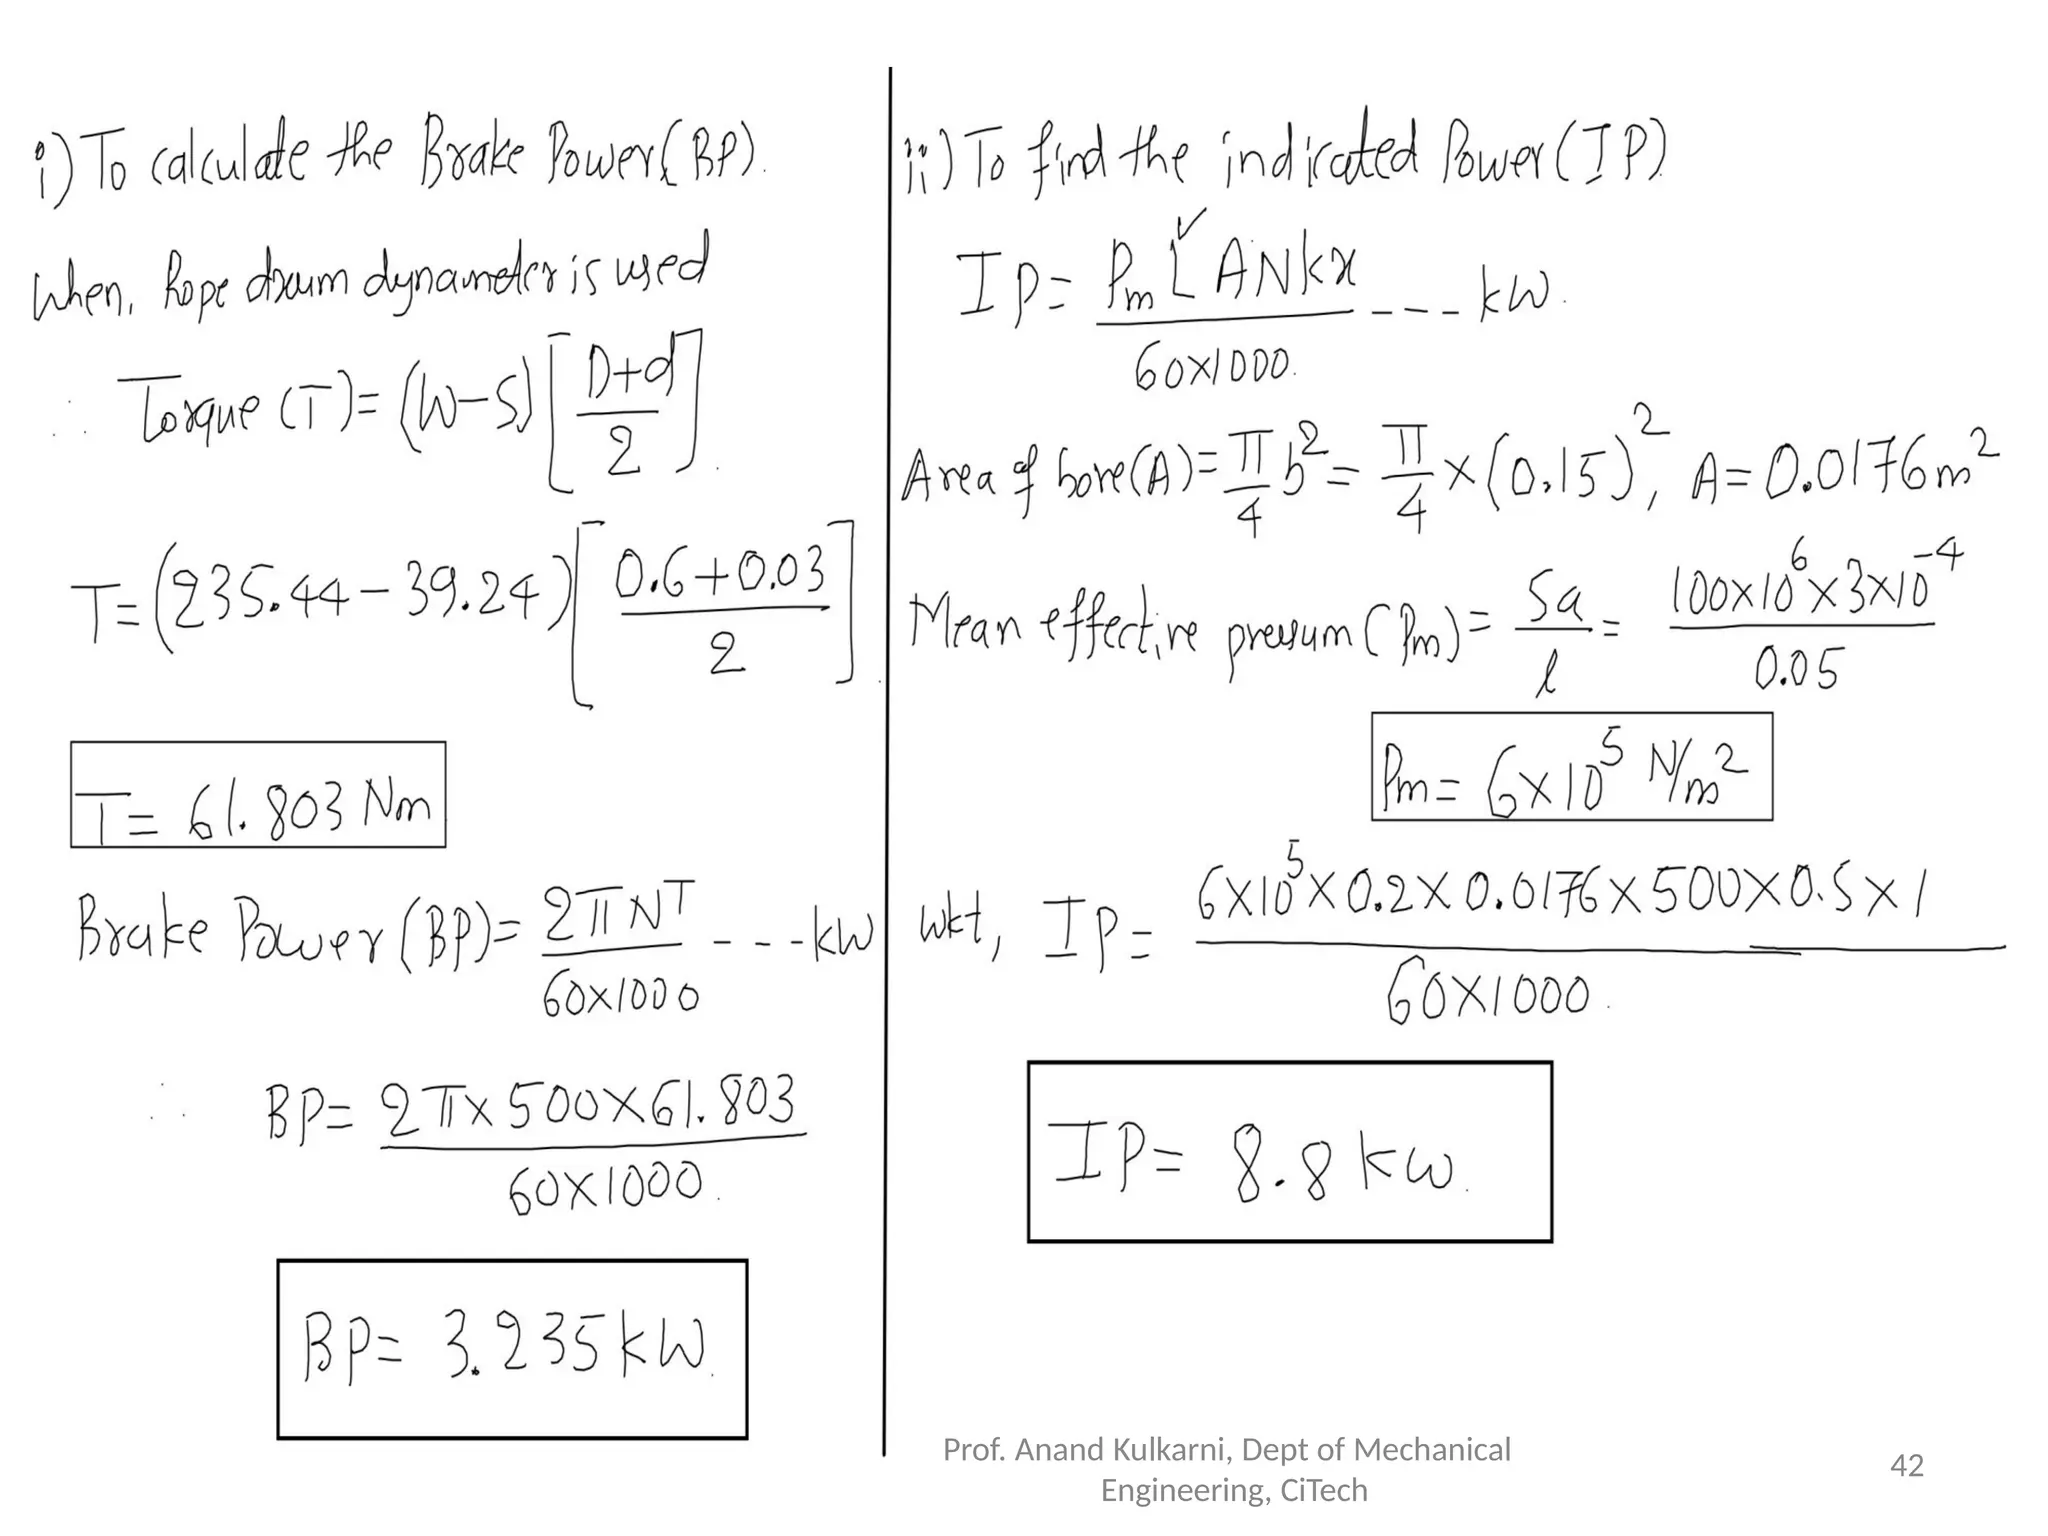 i) To calculate the Brake Power (BP).
When, Rope drum dynamometer is used
∴ Torque (T) = (W-S) [D+d / 2]
T = (235.44 - 39.24) [0.6+0.03 / 2]
T = 61.803 Nm
Brake Power (BP) = 2πNT / 60x1000 - - - kW
∴ BP = 2πx500x61.803 / 60x1000.
BP = 3.235 kW.
ii) To find the indicated Power (IP)
IP = Pm L ANkx / 60x1000. - - - kW.
Area of bore (A) = π/4 b² = π/4 x (0.15)², A = 0.0176 m²
Mean effective pressure (Pm) = Sa / l = 100x10⁶x3x10⁻⁴ / 0.05
Pm = 6x10⁵ N/m²
wkt, IP = 6x10⁵x0.2x0.0176x500x0.5x1 / 60x1000.
IP = 8.8 kW.
Prof. Anand Kulkarni, Dept of Mechanical
Engineering, CiTech
42